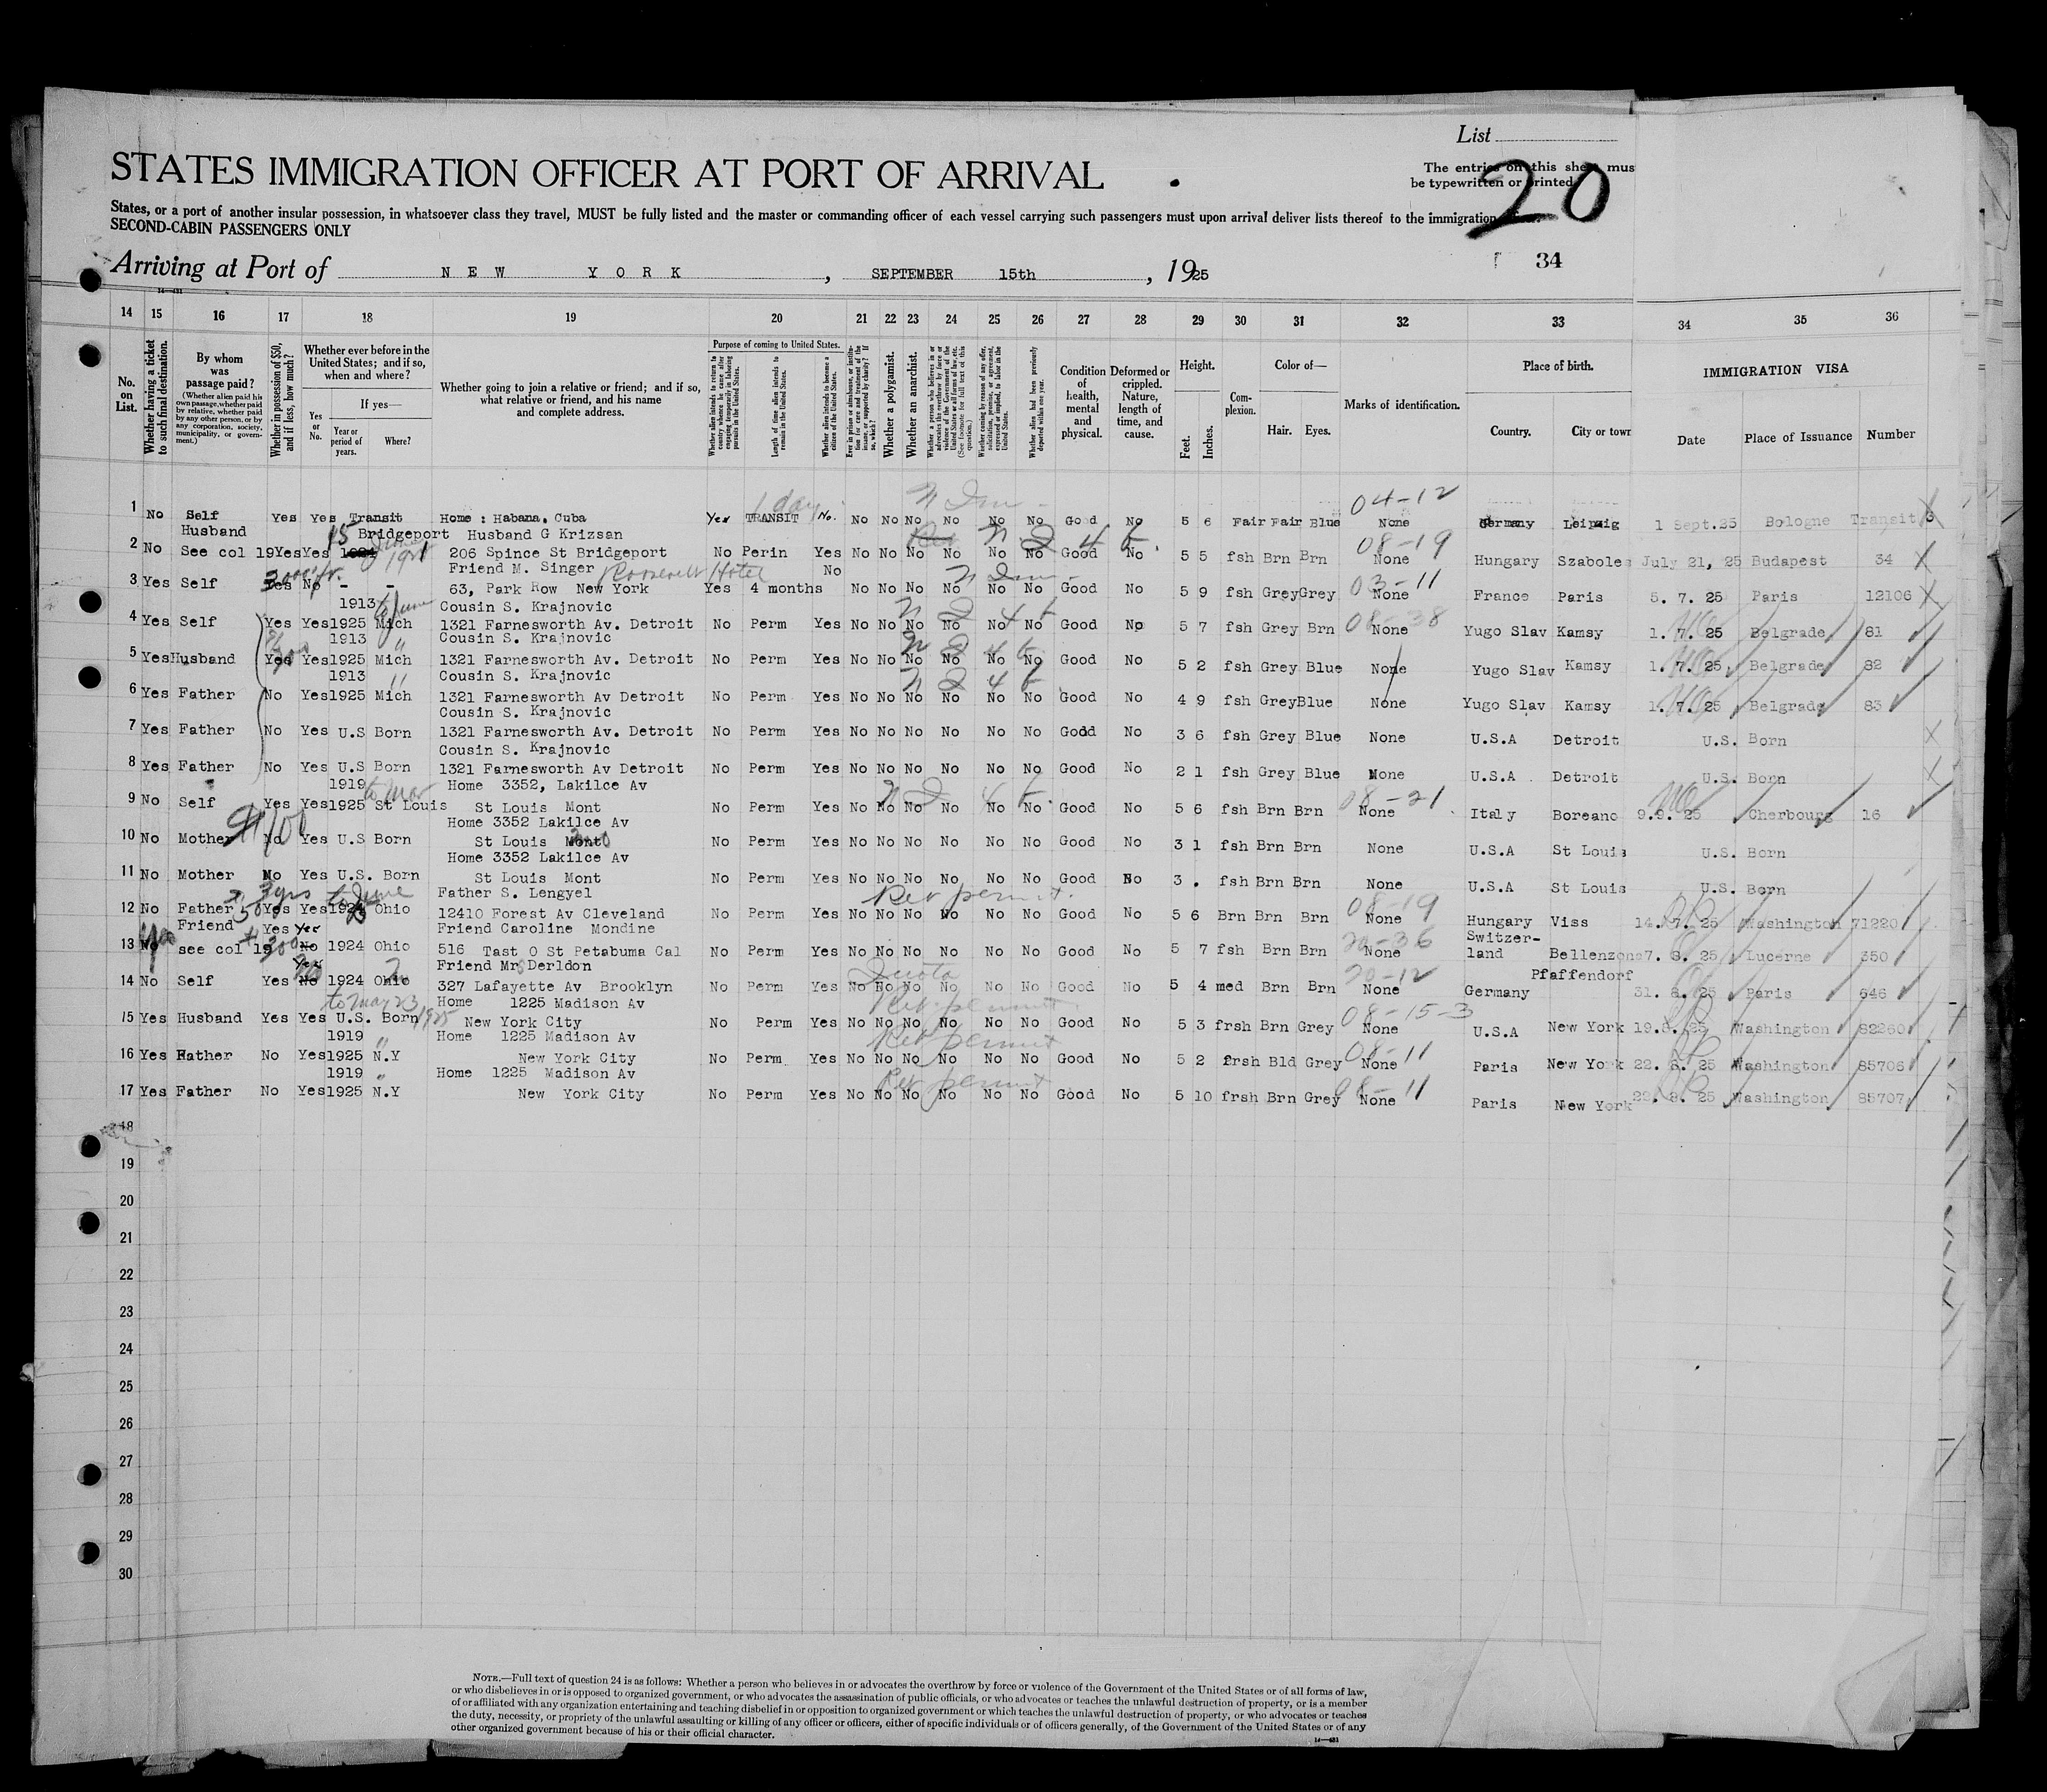 List
STATES IMMIGRATION OFFICER AT PORT OF ARRIVAL
The entries on this sheet mus
be typewritten or printed
20
States, or a port of another insular possession, in whatsoever class they travel, MUST be fully listed and the master or commanding officer of each vessel carrying such passengers must upon arrival deliver lists thereof to the immigration
SECOND-CABIN PASSENGERS ONLY
Arriving at Port of NEW YORK, SEPTEMBER 15th, 1925
34
14 15 16 17 18 19 20 21 22 23 24 25 26 27 28 29 30 31 32 33 34 35 36
No. on List.
Whether having a ticket to such final destination.
By whom was passage paid?
(Whether alien paid his own passage, whether paid by relative, whether paid by any other person, or by any corporation, society, municipality, or government.)
Whether in possession of $50, and if less, how much?
Whether ever before in the United States; and if so, when and where?
Yes or No.
If yes—
Year or period of years.
Where?
Whether going to join a relative or friend; and if so, what relative or friend, and his name and complete address.
Purpose of coming to United States.
Whether alien intends to return to country whence he came after engaging temporarily in laboring pursuits in the United States.
Length of time alien intends to remain in the United States.
Whether alien intends to become a citizen of the United States.
Ever in prison or almshouse, or institution for care and treatment of the insane, or supported by charity? If so, which?
Whether a polygamist.
Whether an anarchist.
Whether coming by reason of any offer, solicitation, promise, or agreement, expressed or implied, to labor in the United States.
Whether alien had been previously deported within one year.
Condition of health, mental and physical.
Deformed or crippled. Nature, length of time, and cause.
Height.
Feet.
Inches.
Complexion.
Color of—
Hair.
Eyes.
Marks of identification.
Place of birth.
Country.
City or town
IMMIGRATION VISA
Date
Place of Issuance
Number
1 day
04-12
1 No Self Yes Yes Transit Home: Habana, Cuba Yes TRANSIT No. No No No No No No Good No 5 6 Fair Fair Blue None Germany Leipzig 1 Sept.25 Bologne Transit
Husband 15 Bridgeport Husband G Krizsan
08-19
2 No See col 19 Yes Yes 1921 206 Spince St Bridgeport No Perin Yes No No No No No No Good No 5 5 fsh Brn Brn None Hungary Szaboles July 21, 25 Budapest 34
Friend M. Singer Roosevelt Hotel No
03-11
3 Yes Self Yes No - - 63, Park Row New York Yes 4 months No No No No No No Good No 5 9 fsh Grey Grey None France Paris 5. 7. 25 Paris 12106
1913 to June Cousin S. Krajnovic
4 Yes Self Yes Yes 1925 Mich 1321 Farnesworth Av. Detroit No Perm Yes No No No No No No Good No 5 7 fsh Grey Brn None Yugo Slav Kamsy 1. 7. 25 Belgrade 81
1913 " Cousin S. Krajnovic
5 Yes Husband Yes Yes 1925 Mich 1321 Farnesworth Av. Detroit No Perm Yes No No No No No No Good No 5 2 fsh Grey Blue None Yugo Slav Kamsy 1. 7. 25 Belgrade 82
1913 " Cousin S. Krajnovic
6 Yes Father No Yes 1925 Mich 1321 Farnesworth Av Detroit No Perm Yes No No No No No No Good No 4 9 fsh Grey Blue None Yugo Slav Kamsy 1. 7. 25 Belgrade 83
Cousin S. Krajnovic
7 Yes Father No Yes U.S Born 1321 Farnesworth Av. Detroit No Perm Yes No No No No No No Good No 3 6 fsh Grey Blue None U.S.A Detroit U.S. Born
Cousin S. Krajnovic
8 Yes Father No Yes U.S Born 1321 Farnesworth Av Detroit No Perm Yes No No No No No No Good No 2 1 fsh Grey Blue None U.S.A Detroit U.S. Born
1919 to Mar Home 3352, Lakilce Av
08-21
9 No Self Yes Yes 1925 St Louis St Louis Mont No Perm Yes No No No No No No Good No 5 6 fsh Brn Brn None Italy Boreano 9.9. 25 Cherbourg 16
$100 Home 3352 Lakilce Av
10 No Mother No Yes U.S Born St Louis Mont No Perm Yes No No No No No No Good No 3 1 fsh Brn Brn None U.S.A St Louis U.S. Born
Home 3352 Lakilce Av
11 No Mother No Yes U.S. Born St Louis Mont No Perm Yes No No No No No No Good No 3 . fsh Brn Brn None U.S.A St Louis U.S. Born
3 yrs to June Father S. Lengyel Ret permit.
08-19
12 No Father 50 Yes Yes Ohio 12410 Forest Av Cleveland No Perm Yes No No No No No No Good No 5 6 Brn Brn Brn None Hungary Viss 14. 7. 25 Washington 71220
Friend Yes Yes Friend Caroline Mondine Switzer-
13 No see col 19 300 No 1924 Ohio 516 Tast O St Petabuma Cal No Perm Yes No No No No No No Good No 5 7 fsh Brn Brn None land Bellenzona 7. 8. 25 Lucerne 350
Yes Friend Mrs Derldon Quota 20-12 Pfaffendorf
14 No Self Yes No 1924 Ohio 327 Lafayette Av Brooklyn No Perm Yes No No No No No No Good No 5 4 med Brn Brn None Germany 31. 8. 25 Paris 646
to May 23, 1925 Home 1225 Madison Av Ret permit
08-15-3
15 Yes Husband Yes Yes U.S. Born New York City No Perm Yes No No No No No No Good No 5 3 frsh Brn Grey None U.S.A New York 19.8. 25 Washington 82260
1919 " Home 1225 Madison Av Ret permit
08-11
16 Yes Father No Yes 1925 N.Y New York City No Perm Yes No No No No No No Good No 5 2 frsh Bld Grey None Paris New York 22. 8. 25 Washington 85706
1919 " Home 1225 Madison Av Ret permit
08-11
17 Yes Father No Yes 1925 N.Y New York City No Perm Yes No No No No No No Good No 5 10 frsh Brn Grey None Paris New York 22. 8. 25 Washington 85707
18
19
20
21
22
23
24
25
26
27
28
29
30
NOTE.—Full text of question 24 is as follows: Whether a person who believes in or advocates the overthrow by force or violence of the Government of the United States or of all forms of law,
or who disbelieves in or is opposed to organized government, or who advocates the assassination of public officials, or who advocates or teaches the unlawful destruction of property, or is a member
of or affiliated with any organization entertaining and teaching disbelief in or opposition to organized government or which teaches the unlawful destruction of property, or who advocates or teaches
the duty, necessity, or propriety of the unlawful assaulting or killing of any officer or officers, either of specific individuals or of officers generally, of the Government of the United States or of any
other organized government because of his or their official character.
14—431